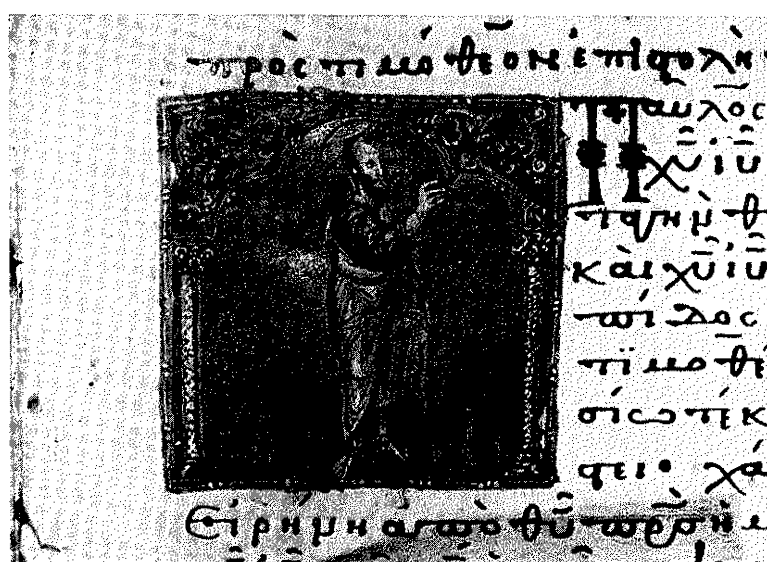 πρὸς τιμόθεον ἐπιστολὴ
Παῦλος
χ̅υ̅ ι̅υ̅
ταγὴν θ
καὶ χ̅υ̅ ι̅υ̅
πίδος
τϊμοθέ
σίω τέκ
στει· χά
Εἰρήνη ἀπὸ θ̅υ̅ π̅ρ̅ς̅